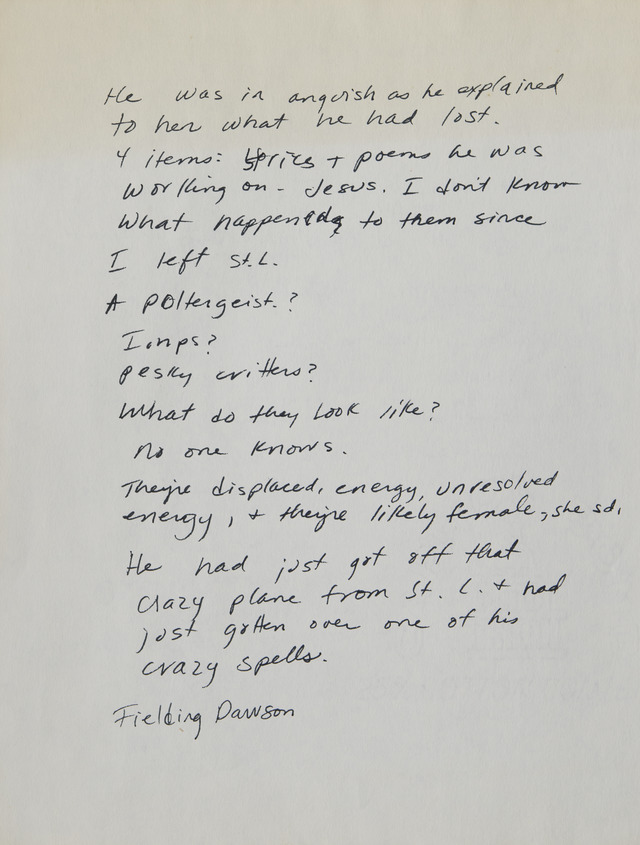 He was in anguish as he explained
to her what he had lost.
4 items: lyrics + poems he was
working on - Jesus. I don't know
what happened to them since
I left St.L.
A poltergeist.?
Imps?
pesky critters?
What do they look like?
No one knows.
They're displaced, energy, unresolved
energy, + they're likely female, she sd,
He had just got off that
crazy plane from St. L. + had
just gotten over one of his
crazy spells.
Fielding Dawson